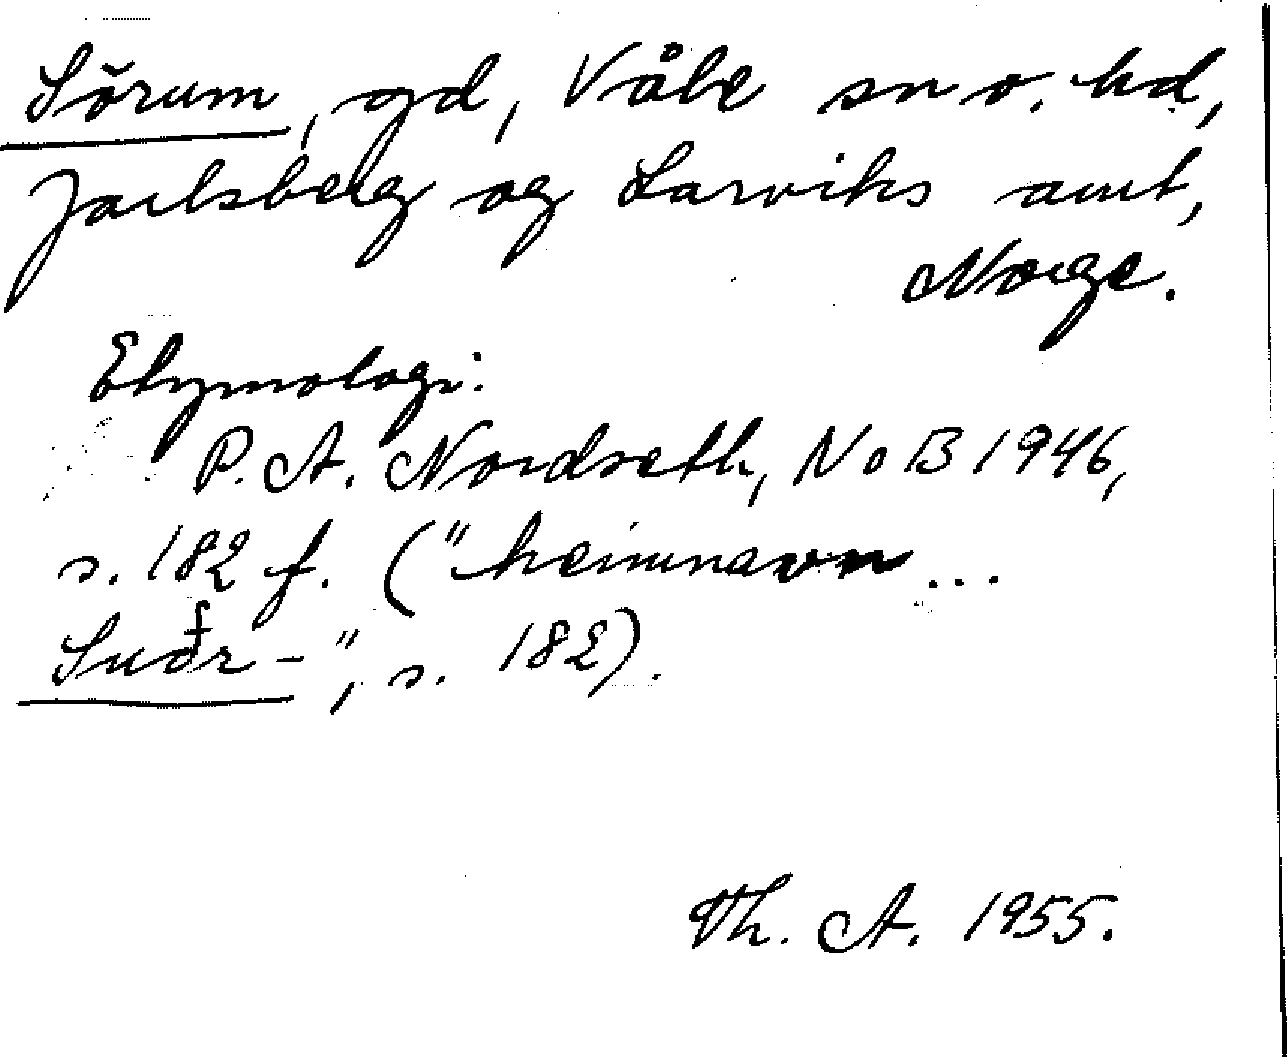 Sörum, gd, Våle sn o. hd,
Jarlsberg og Larviks amt,
Norge.
Etymologi:
P. A. Nordseth, NoB 1946,
s. 182 f. ("heimnavn ...
Suðr-", s. 182).
Th. A. 1955.